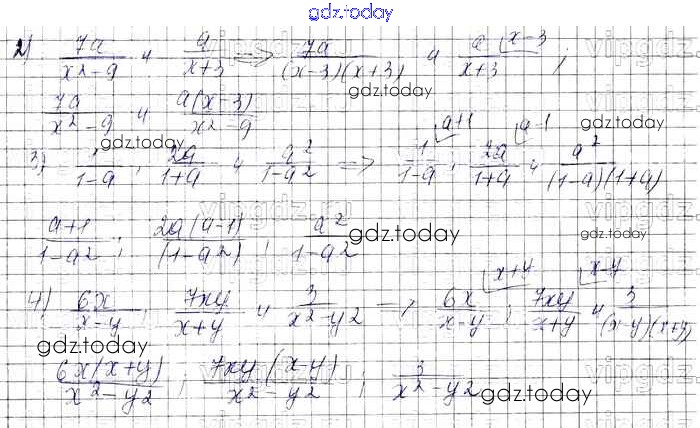 gdz.today
2) 7a/(x²-9) и a/(x+3) => 7a/((x-3)(x+3)) и a/(x+3) (x-3 ;
7a/(x²-9) и a(x-3)/(x²-9)
gdz.today gdz.today gdz.today
3) /(1-a) ; 2a/(1+a) и a²/(1-a²) => 1/(1-a) (a+1 ; 2a/(1+a) (a-1 и a²/((1-a)(1+a))
(a+1)/(1-a2) ; 2a(a-1)/(1-a2) ; a²/(1-a2) gdz.today
4) 6x/(x-y) ; 7xy/(x+y) и 3/(x²-y2) => 6x/(x-y) (x+y ; 7xy/(x+y) (x-y и 3/((x-y)(x+y))
gdz.today
6x(x+y)/(x²-y2) ; 7xy(x-y)/(x²-y2) ; 3/(x²-y2) gdz.today